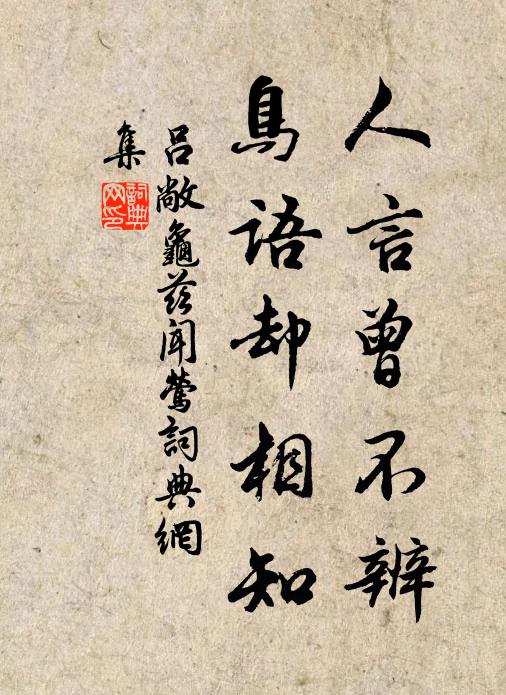 人言曾不辨
鳥語却相知
呂敞龜茲聞鶯詞典網
集
詞典
网印